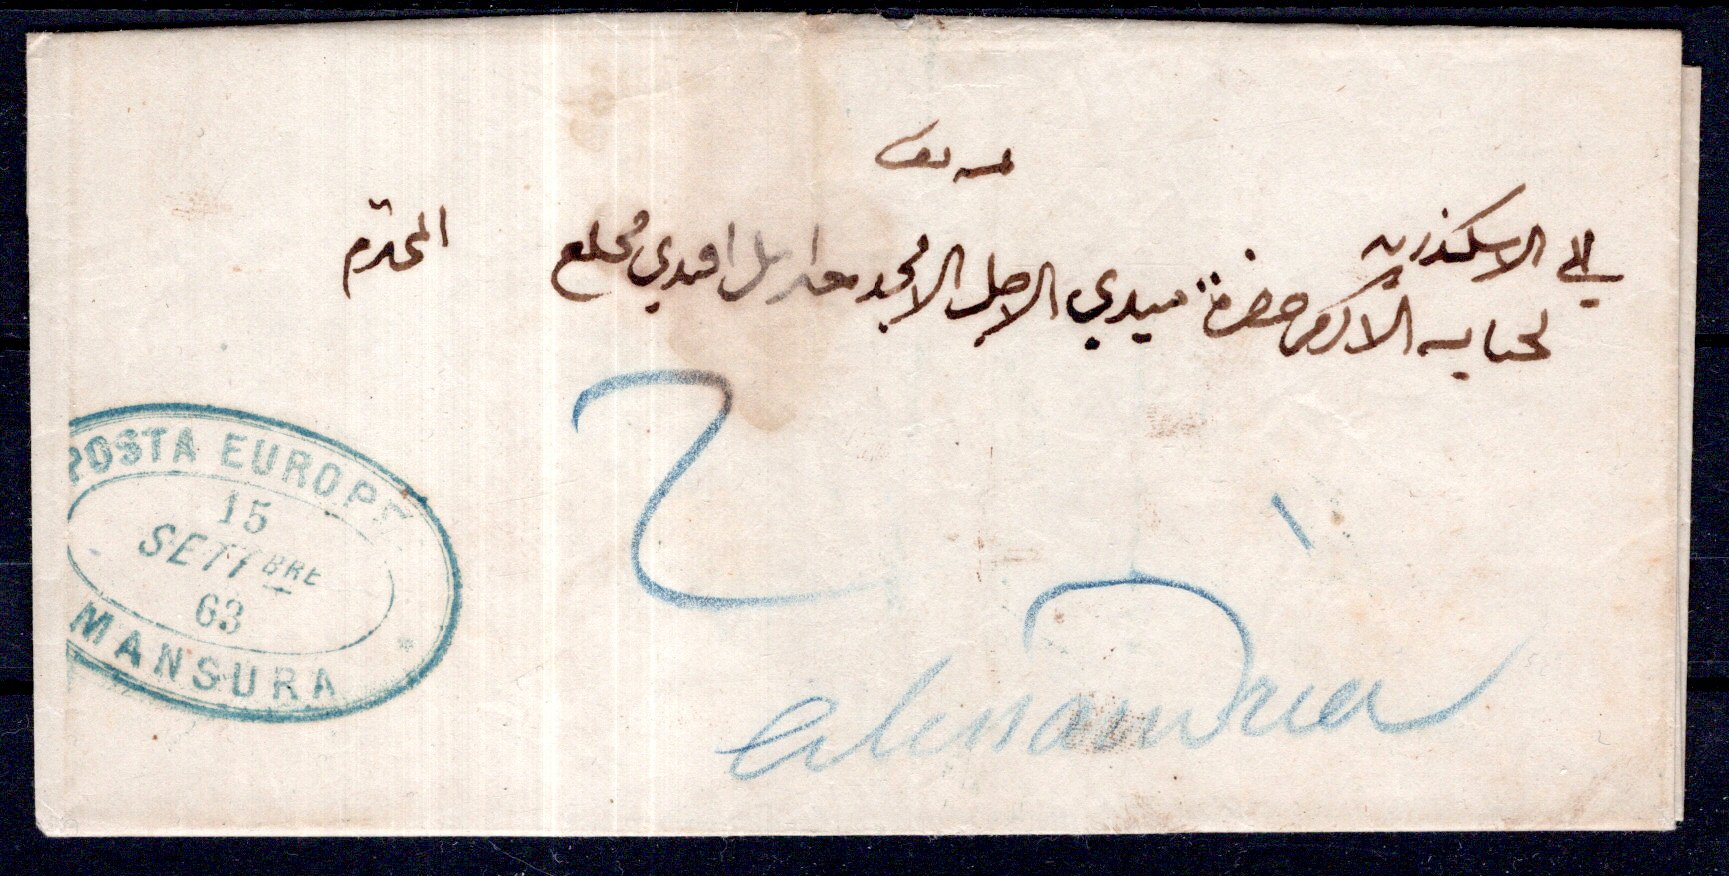 الى الاسكندريه
لجنابه الاكرم حضرة سيدي الاجل الامجد افندي المحترم
2
POSTA EUROPE
15
SETTBRE
63
MANSURA
alessandria